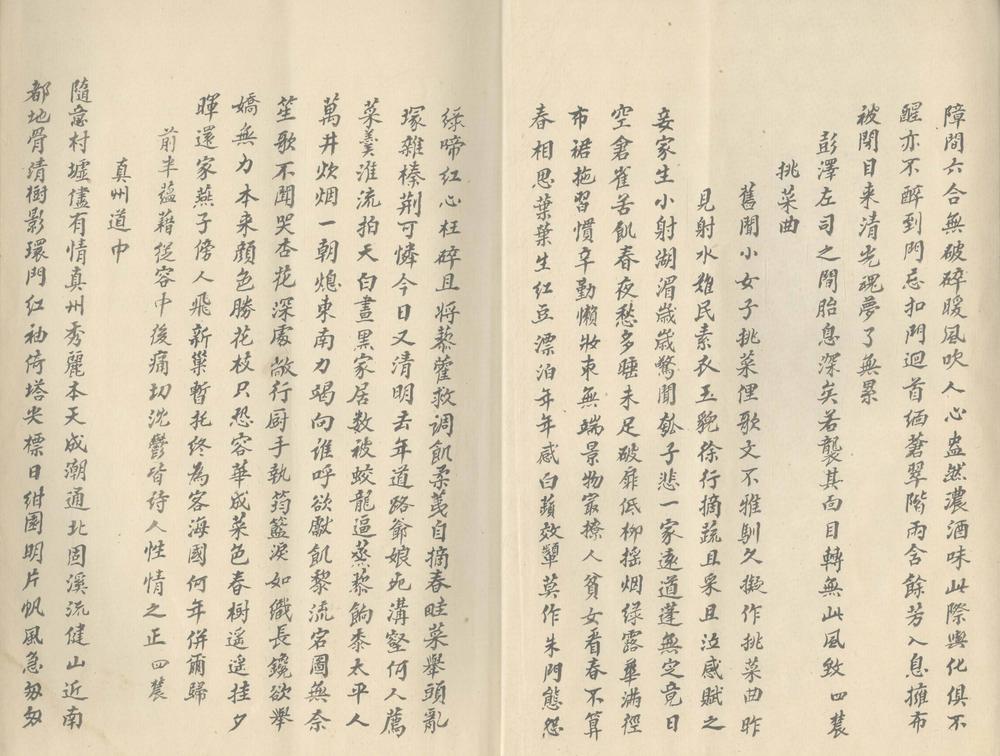 障間六合無破碎暖風吹人心盎然濃酒味此際與化俱不
醒亦不醉到門忘扣門迴首緬蒼翠階雨含餘芳入息擁布
被閉目来清光魂夢了無累
彭澤左司之間胎息深矣若襲其面目轉無此風致 四農
挑菜曲
舊聞小女子挑菜俚歌文不雅馴久擬作挑菜曲昨
見射水難民素衣玉貌徐行摘蔬且采且泣感賦之
妾家生小射湖湄歲歲驚聞瓠子悲一家遠道蓬無定竟日
空倉雀苦飢春夜愁多睡未足破扉低柳摇烟绿露華滿徑
布裙拖習慣辛勤懶妝束無端景物最撩人貧女看春不算
春相思葉葉生红豆漂泊年年感白蘋效顰莫作朱門態怨
綠啼红心枉碎且将藜藿救調飢柔荑自摘春畦菜舉頭亂
塚雜榛荆可憐今日又清明去年道路爺娘死溝壑何人薦
菜羹淮流拍天白晝黑家居数被蛟龍逼蒸藜餉黍太平人
萬井炊烟一朝熄東南力竭向誰呼欲獻飢黎流宕圖無奈
笙歌不聞哭杏花深處敞行厨手執筠籃淚如織長鑱欲舉
嬌無力本来顔色勝花枝只恐容華成菜色春樹遥遥挂夕
暉還家燕子傍人飛新巢暫託終為客海國何年併爾歸
前半蕴藉從容中後痛切沈鬱皆詩人性情之正 四農
真州道中
隨意村墟儘有情真州秀麗本天成潮通北固溪流健山近南
都地骨清樹影環門红袖倚塔尖標日紺園明片帆風急匆匆